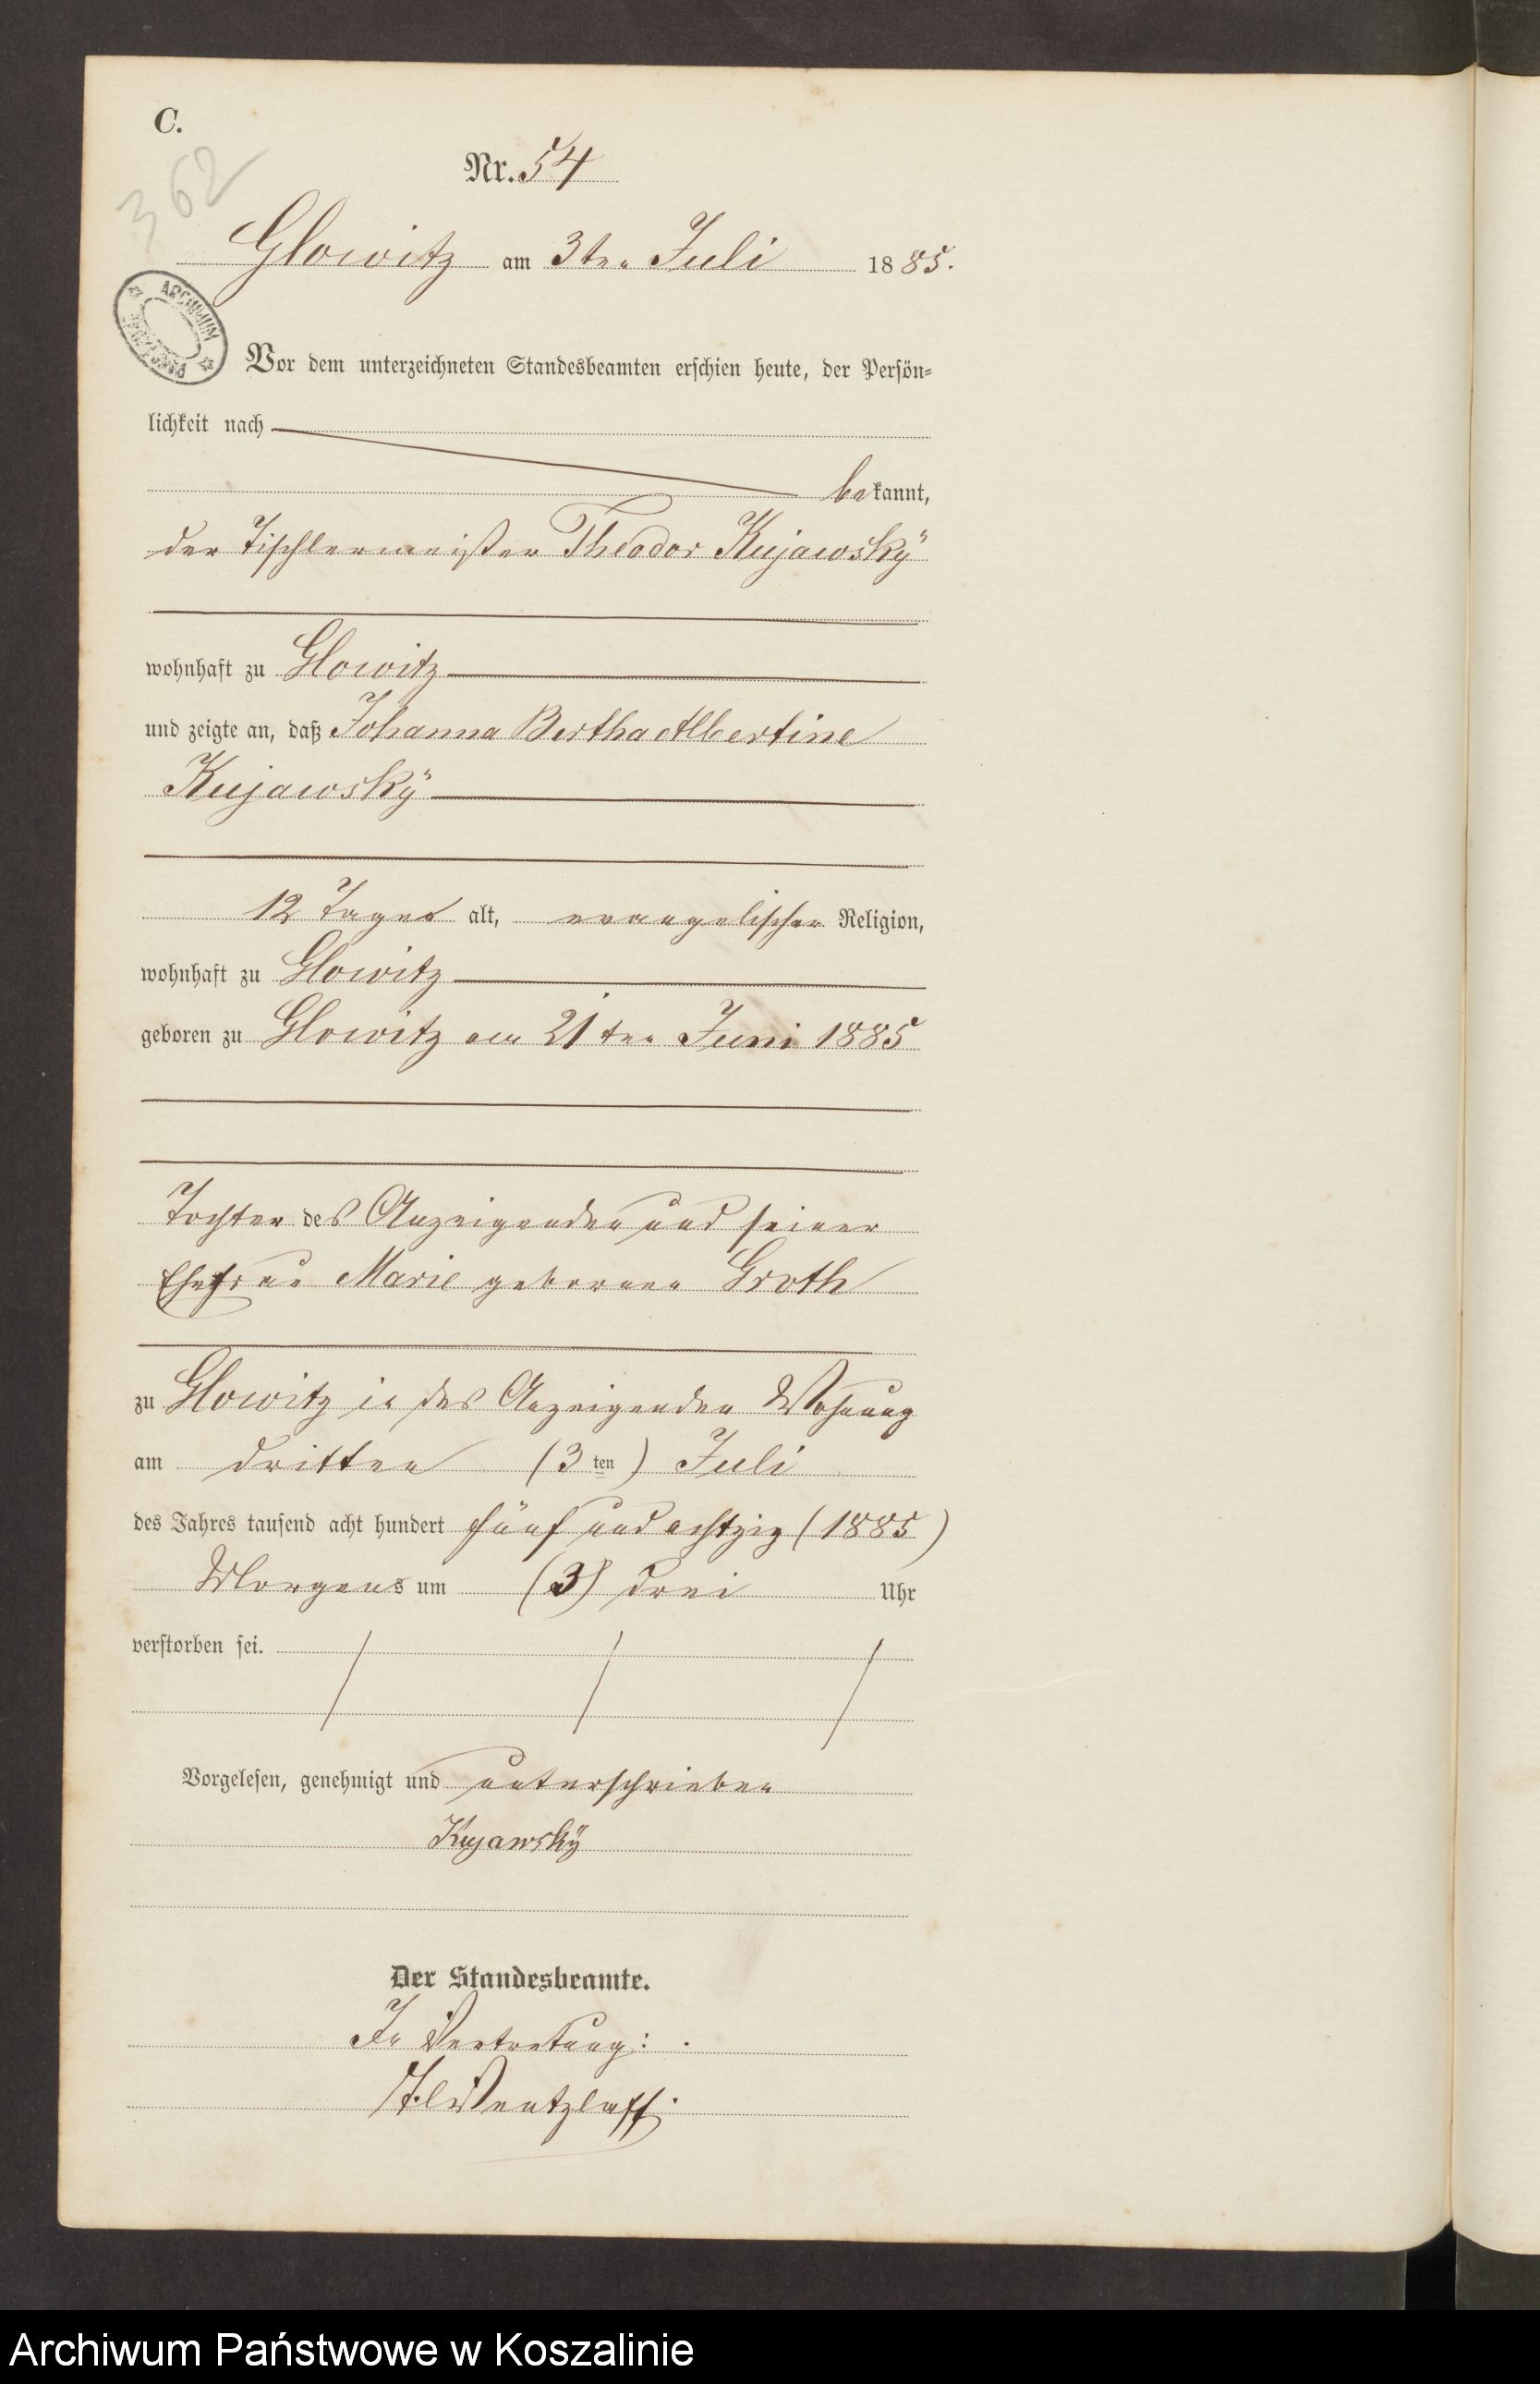 C.
362
Nr. 54
Glowitz am 3ten Juli 1885.
ARCHIWUM
Vor dem unterzeichneten Standesbeamten erschien heute, der Persön-
lichkeit nach
bekannt,
der Tischlermeister Theodor Kujawskÿ
wohnhaft zu Glowitz
und zeigte an, daß Johanna Bertha Albertine
Kujawskÿ
12 Tage alt, evangelischer Religion,
wohnhaft zu Glowitz
geboren zu Glowitz am 21ten Juni 1885
Tochter des Anzeigenden und seiner
Ehefrau Marie geborenen Groth
zu Glowitz in des Anzeigenden Wohnung
am dritten (3ten) Juli
des Jahres tausend acht hundert fünf und achtzig (1885)
Morgens um (3) drei Uhr
verstorben sei.
Vorgelesen, genehmigt und unterschrieben
Kujawskÿ
Der Standesbeamte.
In Vertretung:
Wentzlaff.
Archiwum Państwowe w Koszalinie